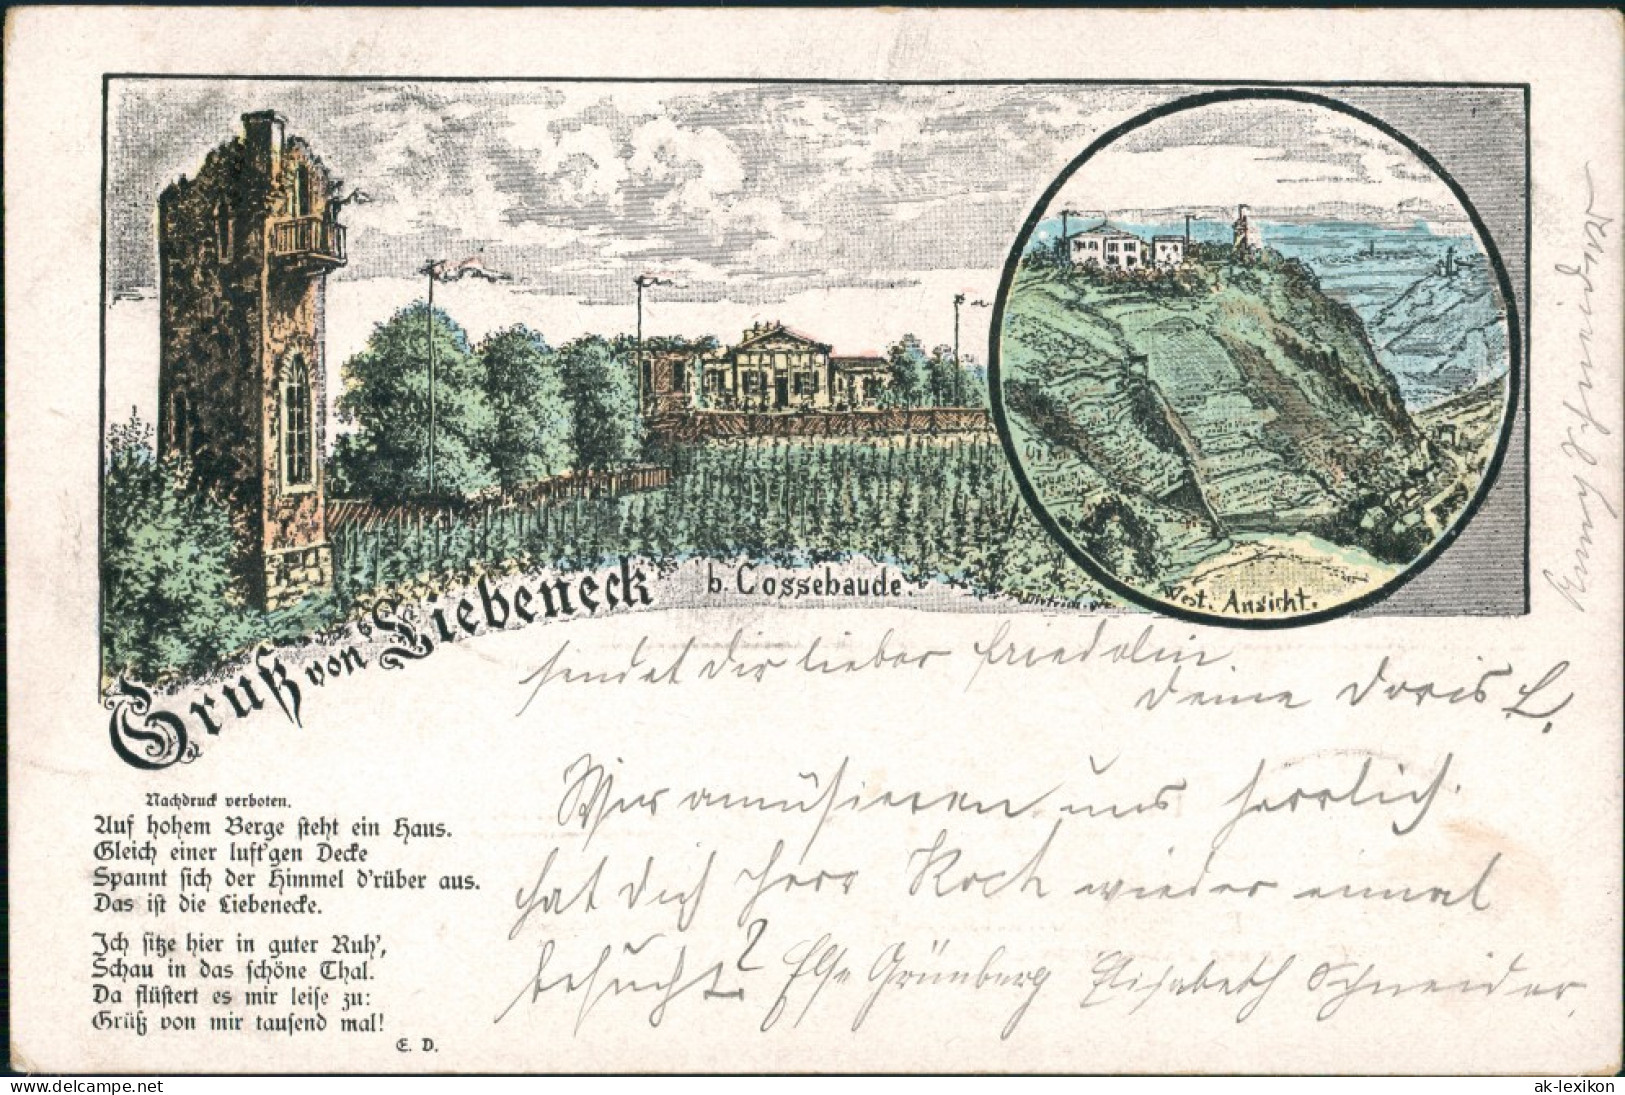 West. Ansicht.
Gruß von Liebeneck b. Cossebaude.
Nachdruck verboten.
Auf hohem Berge steht ein Haus.
Gleich einer luft'gen Decke
Spannt sich der Himmel d'rüber aus.
Das ist die Liebenecke.
Ich sitze hier in guter Ruh',
Schau in das schöne Thal.
Da flüstert es mir leise zu:
Grüß von mir tausend mal!
E. D.
sendet dir lieber Friedolin.
deine Doris L.
Wir amüsieren uns herrlich.
hat dich Herr Koch wieder einmal
besucht? Else Grünberg Elisabeth Schneider,
www.delcampe.net
ak-lexikon